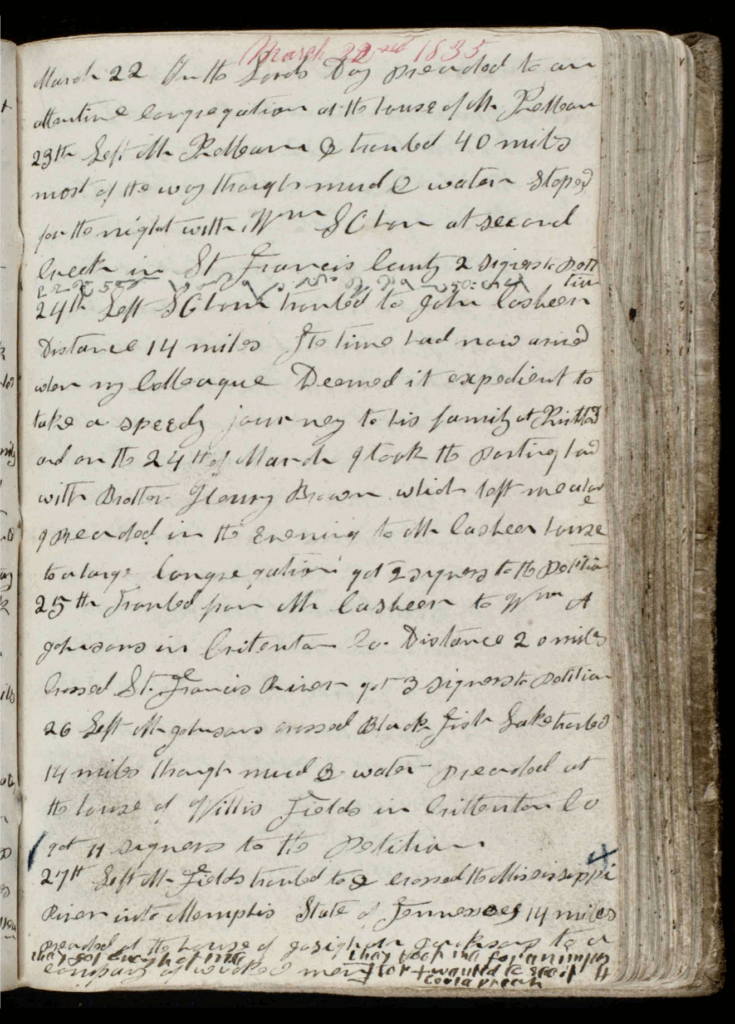 March 22nd 1835
March 22 On the Lords Day preached to an
attentive congregation at the house of Mr
23th Left Mr & traviled 40 mils
most of the way through mud & water stoped
for the night with Wm at second
Creek in St Francis County 2 signers to petition
24th Left traviled to John
Distance 14 miles The time had now arived
when my Colleague Deemed it expedient to
take a speedy journey to his family at
and on the 24th of March I took the parting hand
with Brother Henry Brown which left me alone
I preached in the Evening to Mr house
to a large Congregation got 2 signers to the petition
25th traviled from Mr to Wm A
Johnsons in Critenton Co. Distance 20 miles
Crossed St. Francis River got 3 signers to petition
26 Left Mr Johnsons crossed Black Fish Lake traviled
14 miles though mud & water preached at
the house of Willis Fields in Crittenton Co
got 11 signers to the petition
27th Left Mr Fields traviled to & crossed the Mississippi
River into Memphis State of Tennessee 14 miles
preached at the house of to a
company of wicked men they took me for an